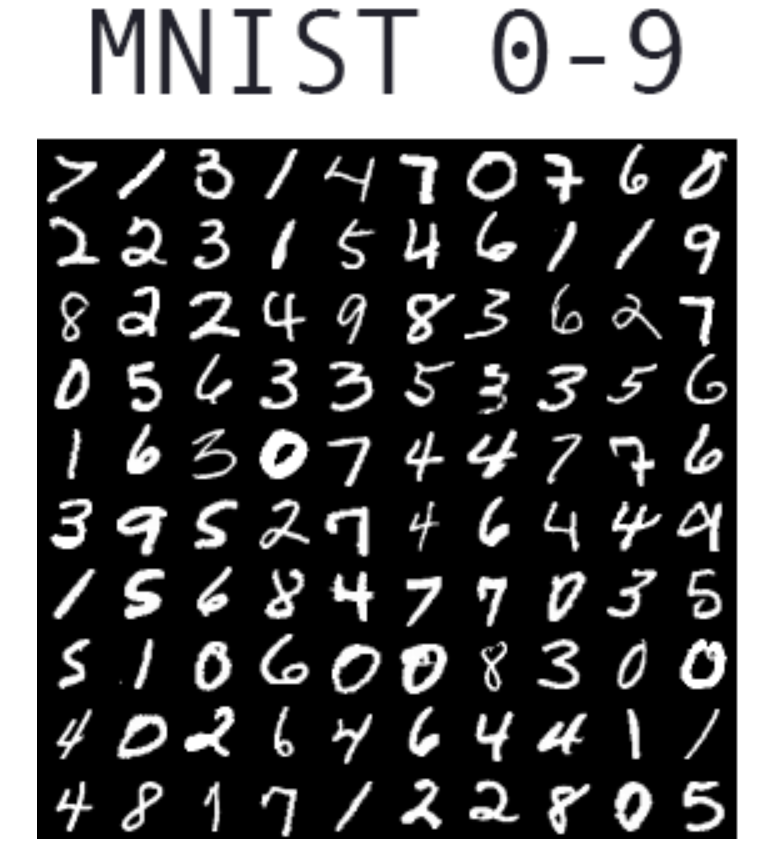 MNIST 0-9
7 1 3 1 4 7 0 7 6 0
2 2 3 1 5 4 6 1 1 9
8 2 2 4 9 8 3 6 2 7
0 5 6 3 3 5 3 3 5 6
1 6 3 0 7 4 4 7 7 6
3 9 5 2 7 4 6 4 4 9
1 5 6 8 4 7 7 0 3 5
5 1 0 6 0 0 8 3 0 0
4 0 2 6 4 6 4 4 1 1
4 8 1 7 1 2 2 8 0 5